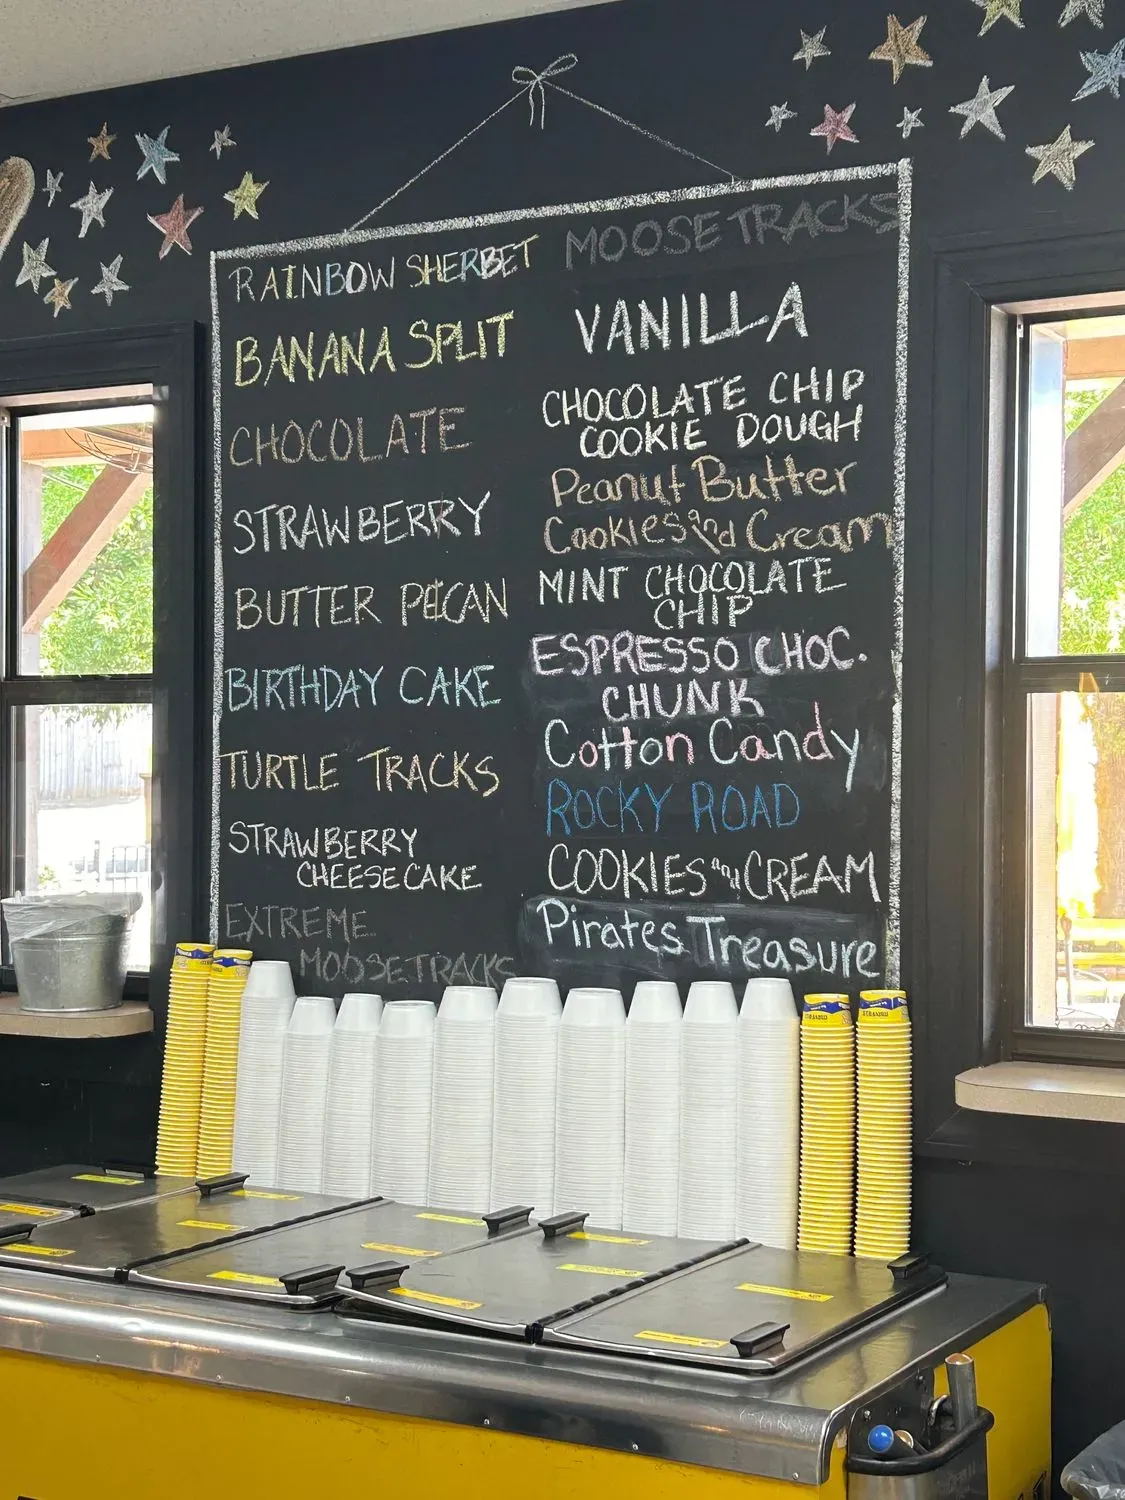 RAINBOW SHERBET
BANANA SPLIT
CHOCOLATE
STRAWBERRY
BUTTER PECAN
BIRTHDAY CAKE
TURTLE TRACKS
STRAWBERRY
CHEESECAKE
EXTREME
MOOSE TRACKS
MOOSE TRACKS
VANILLA
CHOCOLATE CHIP
COOKIE DOUGH
Peanut Butter
Cookies and Cream
MINT CHOCOLATE
CHIP
ESPRESSO CHOC.
CHUNK
Cotton Candy
ROCKY ROAD
COOKIES and CREAM
Pirates Treasure